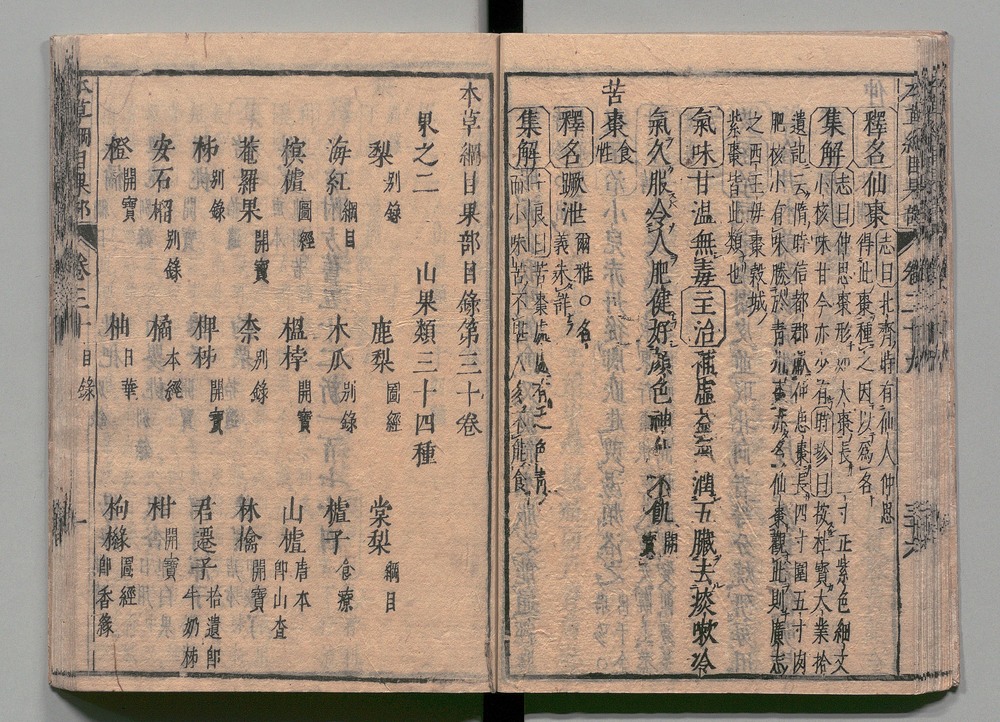 釋名仙棗志曰北齊時有仙人仲思
得此棗種之因以爲名
集解志曰仲思棗形如大棗長一寸正紫色細文
小核味甘今亦少有時珍曰按杜寶大業拾
遺記云隋時信都郡獻仲思棗長四寸圍五寸肉
肥核小有味勝於青州棗亦名仙棗觀此則廣志
之西王母棗穀城
紫棗皆此類也
氣味甘溫無毒主治補虛益氣潤五臟去痰嗽冷
氣久服令人肥健好顏色神仙不飢開寶
苦棗食性
釋名蹶泄爾雅○名義未詳
集解
而小味苦不堪人多不食
本草綱目果部目錄第三十卷
果之二 山果類三十四種
梨別錄 鹿梨圖經 棠梨綱目
海紅綱目 木瓜別錄 樝子食療
榠樝圖經 榲桲開寶 山樝唐本即山查
菴羅果開寶 柰別錄 林檎開寶
柹別錄 椑柹開寶 君遷子拾遺即牛奶柹
安石榴別錄 橘本經 柑開寶
橙開寶 柚日華 枸櫞圖經即香櫞
本草綱目果部 卷三十目錄 一